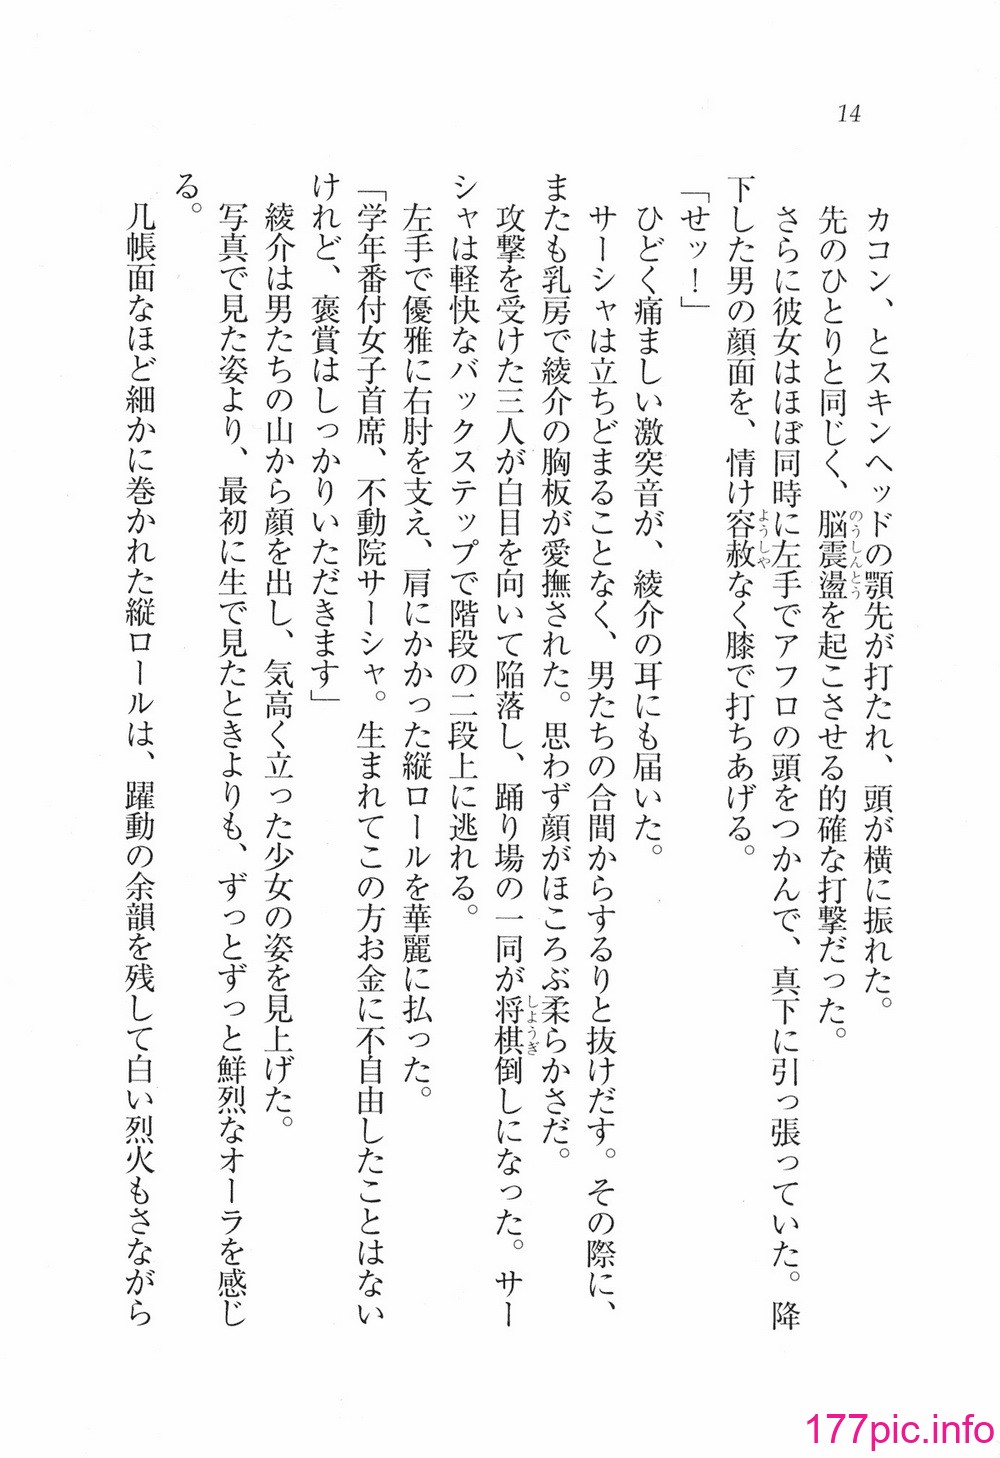 14
カコン、とスキンヘッドの顎先が打たれ、頭が横に振れた。
先のひとりと同じく、脳震盪を起こさせる的確な打撃だった。
さらに彼女はほぼ同時に左手でアフロの頭をつかんで、真下に引っ張っていた。降
下した男の顔面を、情け容赦なく膝で打ちあげる。
「せッ！」
ひどく痛ましい激突音が、綾介の耳にも届いた。
サーシャは立ちどまることなく、男たちの合間からするりと抜けだす。その際に、
またも乳房で綾介の胸板が愛撫された。思わず顔がほころぶ柔らかさだ。
攻撃を受けた三人が白目を向いて陥落し、踊り場の一同が将棋倒しになった。サー
シャは軽快なバックステップで階段の二段上に逃れる。
左手で優雅に右肘を支え、肩にかかった縦ロールを華麗に払った。
「学年番付女子首席、不動院サーシャ。生まれてこの方お金に不自由したことはない
けれど、褒賞はしっかりいただきます」
綾介は男たちの山から顔を出し、気高く立った少女の姿を見上げた。
写真で見た姿より、最初に生で見たときよりも、ずっとずっと鮮烈なオーラを感じ
る。
几帳面なほど細かに巻かれた縦ロールは、躍動の余韻を残して白い烈火もさながら
のうしんとう
ようしゃ
しょうぎ
177pic.info